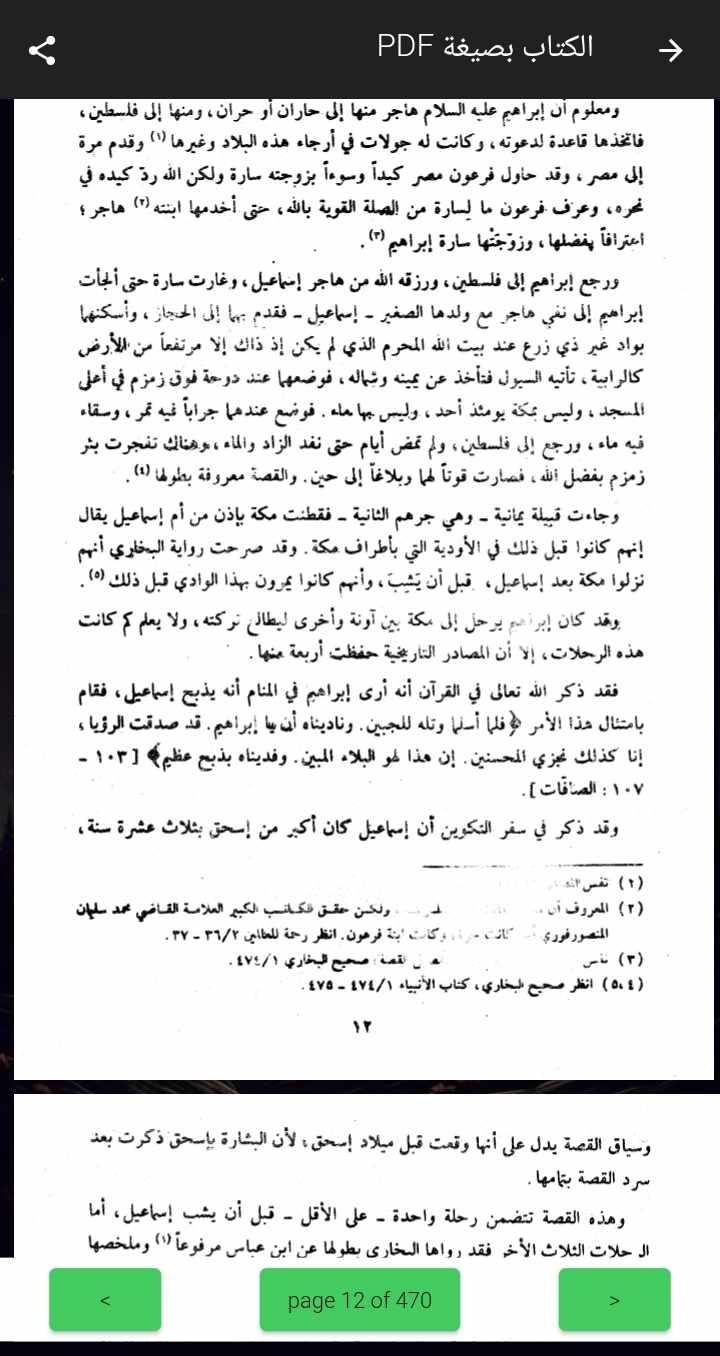 الكتاب بصيغة PDF
ومعلوم أن إبراهيم عليه السلام هاجر منها إلى حاران أو حران، ومنها إلى فلسطين،
فاتخذها قاعدة لدعوته، وكانت له جولات في أرجاء هذه البلاد وغيرها (١) وقدم مرة
إلى مصر، وقد حاول فرعون مصر كيداً وسوءاً بزوجته سارة ولكن الله ردّ كيده في
نحره، وعرف فرعون ما لسارة من الصلة القوية بالله، حتى أخدمها ابنته (٢) هاجر؛
اعترافاً بفضلها، وزوّجتْها سارة إبراهيم (٣).
ورجع إبراهيم إلى فلسطين، ورزقه الله من هاجر إسماعيل، وغارت سارة حتى ألجأت
إبراهيم إلى نفي هاجر مع ولدها الصغير - إسماعيل - فقدم بهما إلى الحجاز، وأسكنهما
بواد غير ذي زرع عند بيت الله المحرم الذي لم يكن إذ ذاك إلا مرتفعاً من الأرض
كالرابية، تأتيه السيول فتأخذ عن يمينه وشماله، فوضعهما عند دوحة فوق زمزم في أعلى
المسجد، وليس بمكة يومئذ أحد، وليس بها ماء. فوضع عندهما جراباً فيه تمر، وسقاء
فيه ماء، ورجع إلى فلسطين، ولم تمض أيام حتى نفد الزاد والماء، وهناك تفجرت بئر
زمزم بفضل الله، فصارت قوتاً لهما وبلاغاً إلى حين. والقصة معروفة بطولها (٤).
وجاءت قبيلة يمانية - وهي جرهم الثانية - فقطنت مكة بإذن من أم إسماعيل يقال
إنهم كانوا قبل ذلك في الأودية التي بأطراف مكة. وقد صرحت رواية البخاري أنهم
نزلوا مكة بعد إسماعيل، قبل أن يَشِبّ، وأنهم كانوا يمرون بهذا الوادي قبل ذلك (٥).
وقد كان إبراهيم يرحل إلى مكة بين آونة وأخرى ليطالع تركته، ولا يعلم كم كانت
هذه الرحلات، إلا أن المصادر التاريخية حفظت أربعة منها.
فقد ذكر الله تعالى في القرآن أنه أرى إبراهيم في المنام أنه يذبح إسماعيل، فقام
بامتثال هذا الأمر ﴿فلما أسلما وتله للجبين. وناديناه أن يا إبراهيم. قد صدقت الرؤيا،
إنا كذلك نجزي المحسنين. إن هذا لهو البلاء المبين. وفديناه بذبح عظيم﴾ [١٠٣ -
١٠٧ : الصافات].
وقد ذكر في سفر التكوين أن إسماعيل كان أكبر من إسحق بثلاث عشرة سنة،
(١) نفس
(٢) المعروف أن ولكن حقق الكاتب الكبير العلامة القاضي محمد سليمان
المنصورفوري كانت وكانت ابنة فرعون. انظر رحمة للعالمين ٣٦/٢ - ٣٧.
(٣) القصة صحيح البخاري ٤٧٤/١.
(٥،٤) انظر صحيح البخاري، كتاب الأنبياء ٤٧٤/١ - ٤٧٥.
١٢
وسياق القصة يدل على أنها وقعت قبل ميلاد إسحق، لأن البشارة بإسحق ذكرت بعد
سرد القصة بتمامها.
وهذه القصة تتضمن رحلة واحدة - على الأقل - قبل أن يشب إسماعيل، أما
الرحلات الثلاث الأخر فقد رواها البخاري بطولها عن ابن عباس مرفوعاً (١) وملخصها
< page 12 of 470 >